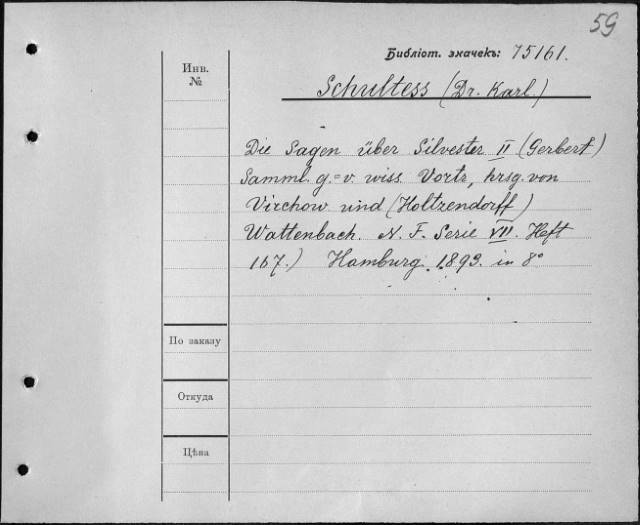 59
Библіот. значекъ: 75161.
Инв.
№
Schultess (Dr. Karl.)
Die Sagen über Silvester II (Gerbert)
Samml. g.=v. wiss. Vortr, hrsg. von
Virchow und (Holtzendorff)
Wattenbach. N. F. Serie VIII. Heft
167.) Hamburg. 1893. in 8°
По заказу
Откуда
Цѣна